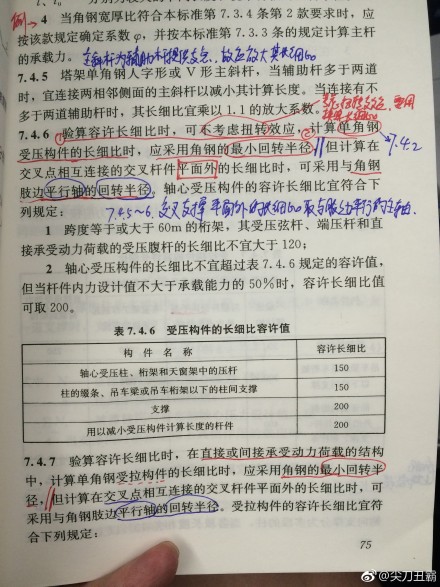 4 当角钢宽厚比符合本标准第 7.3.4 条第 2 款要求时，应
按该款规定确定系数 φ，并按本标准第 7.3.3 条的规定计算主杆
的承载力。
7.4.5 塔架单角钢人字形或 V 形主斜杆，当辅助杆多于两道
时，宜连接两相邻侧面的主斜杆以减小其计算长度。当连接有不
多于两道辅助杆时，其长细比宜乘以 1.1 的放大系数。
7.4.6 验算容许长细比时，可不考虑扭转效应，计算单角钢
7.4.2
受压构件的长细比时，应采用角钢的最小回转半径，但计算在
交叉点相互连接的交叉杆件平面外的长细比时，可采用与角钢
肢边平行轴的回转半径。轴心受压构件的容许长细比宜符合下
列规定：
1 跨度等于或大于 60m 的桁架，其受压弦杆、端压杆和直
接承受动力荷载的受压腹杆的长细比不宜大于 120；
2 轴心受压构件的长细比不宜超过表 7.4.6 规定的容许值，
但当杆件内力设计值不大于承载能力的 50%时，容许长细比值
可取 200。
表 7.4.6 受压构件的长细比容许值
构 件 名 称 容许长细比
轴心受压柱、桁架和天窗架中的压杆 150
柱的缀条、吊车梁或吊车桁架以下的柱间支撑 150
支撑 200
用以减小受压构件计算长度的杆件 200
7.4.7 验算容许长细比时，在直接或间接承受动力荷载的结构
中，计算单角钢受拉构件的长细比时，应采用角钢的最小回转半
径，但计算在交叉点相互连接的交叉杆件平面外的长细比时，可
采用与角钢肢边平行轴的回转半径。受拉构件的容许长细比宜符
合下列规定：
75
@尖刀丑霸